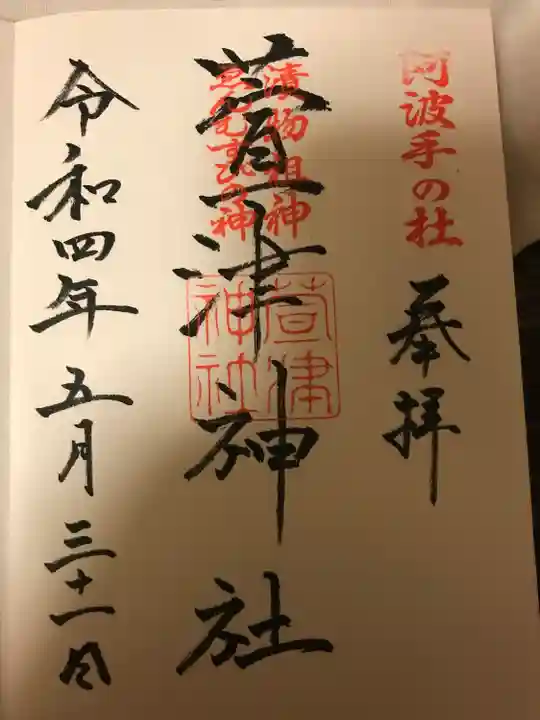 阿波手の杜
奉拝
漬物祖神
ゑんむすひの神
萱津神社
萱津
神社
令和四年五月三十一日